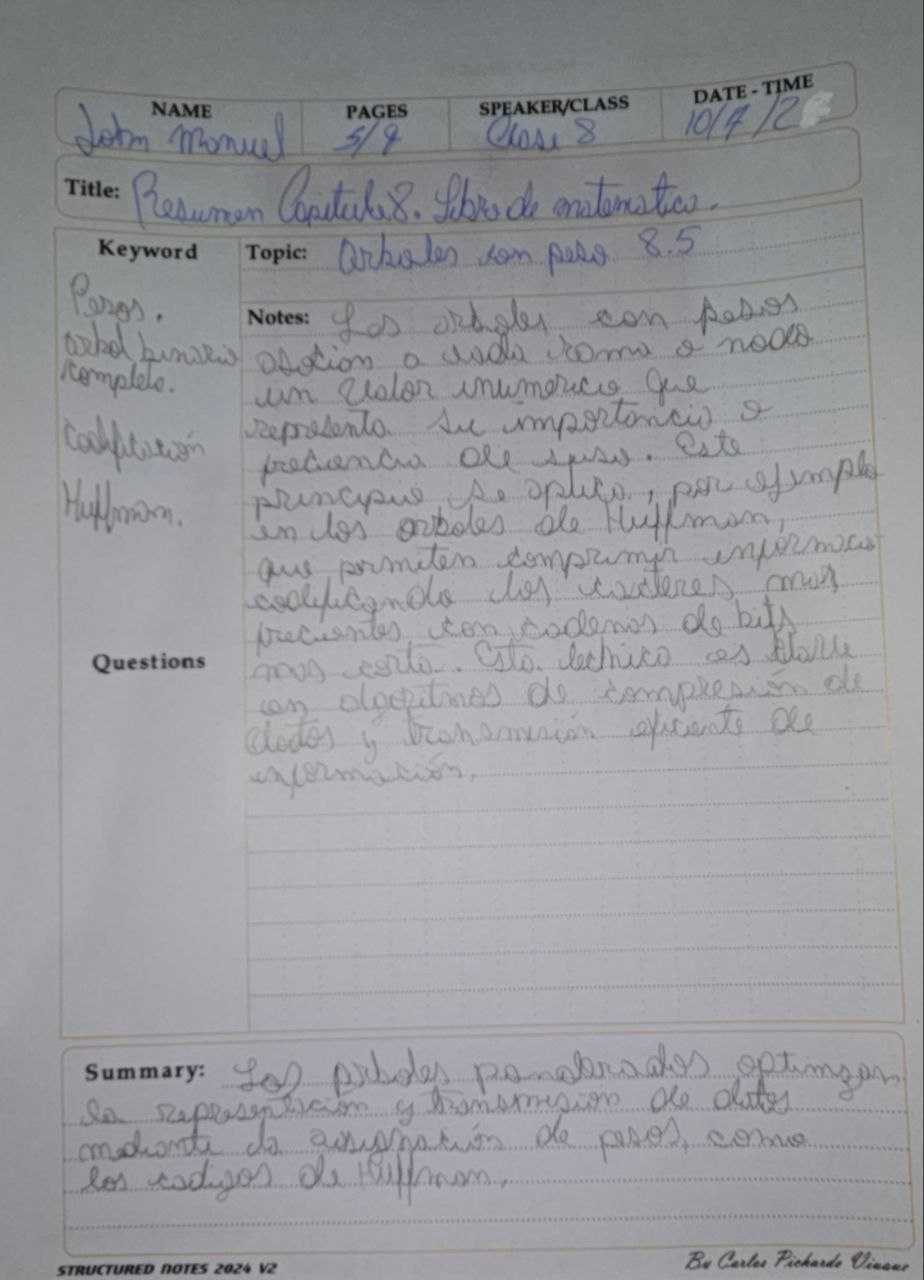 NAME PAGES SPEAKER/CLASS DATE - TIME
John Manuel 5/9 Clase 8 10/7/2
Title: Resumen Capitulo 8. Libro de matematica.
Keyword
Topic: Arboles con peso 8.5
Pesos.
arbol binario
completo.
Codificación
Huffman.
Notes: Los arboles con pesos
asocian a cada rama o nodo
un valor inumerico que
representa su importancia o
frecuencia de suso. Este
principio se aplica, por ejemplo
en los arboles de Huffman,
que permiten comprimir informacio
codificando los cacteres mas
frecuentes con cadenas de bits
mas corta. Esta technica es
en algoritmos de compresión de
datos y transmisión eficiente de
información.
Questions
Summary: Los arboles optimizan
la represención y transmision de datos
mediante la asignación de pesos, como
los codigos de Huffman.
STRUCTURED NOTES 2024 V2
By Carlos Pichardo Viuque